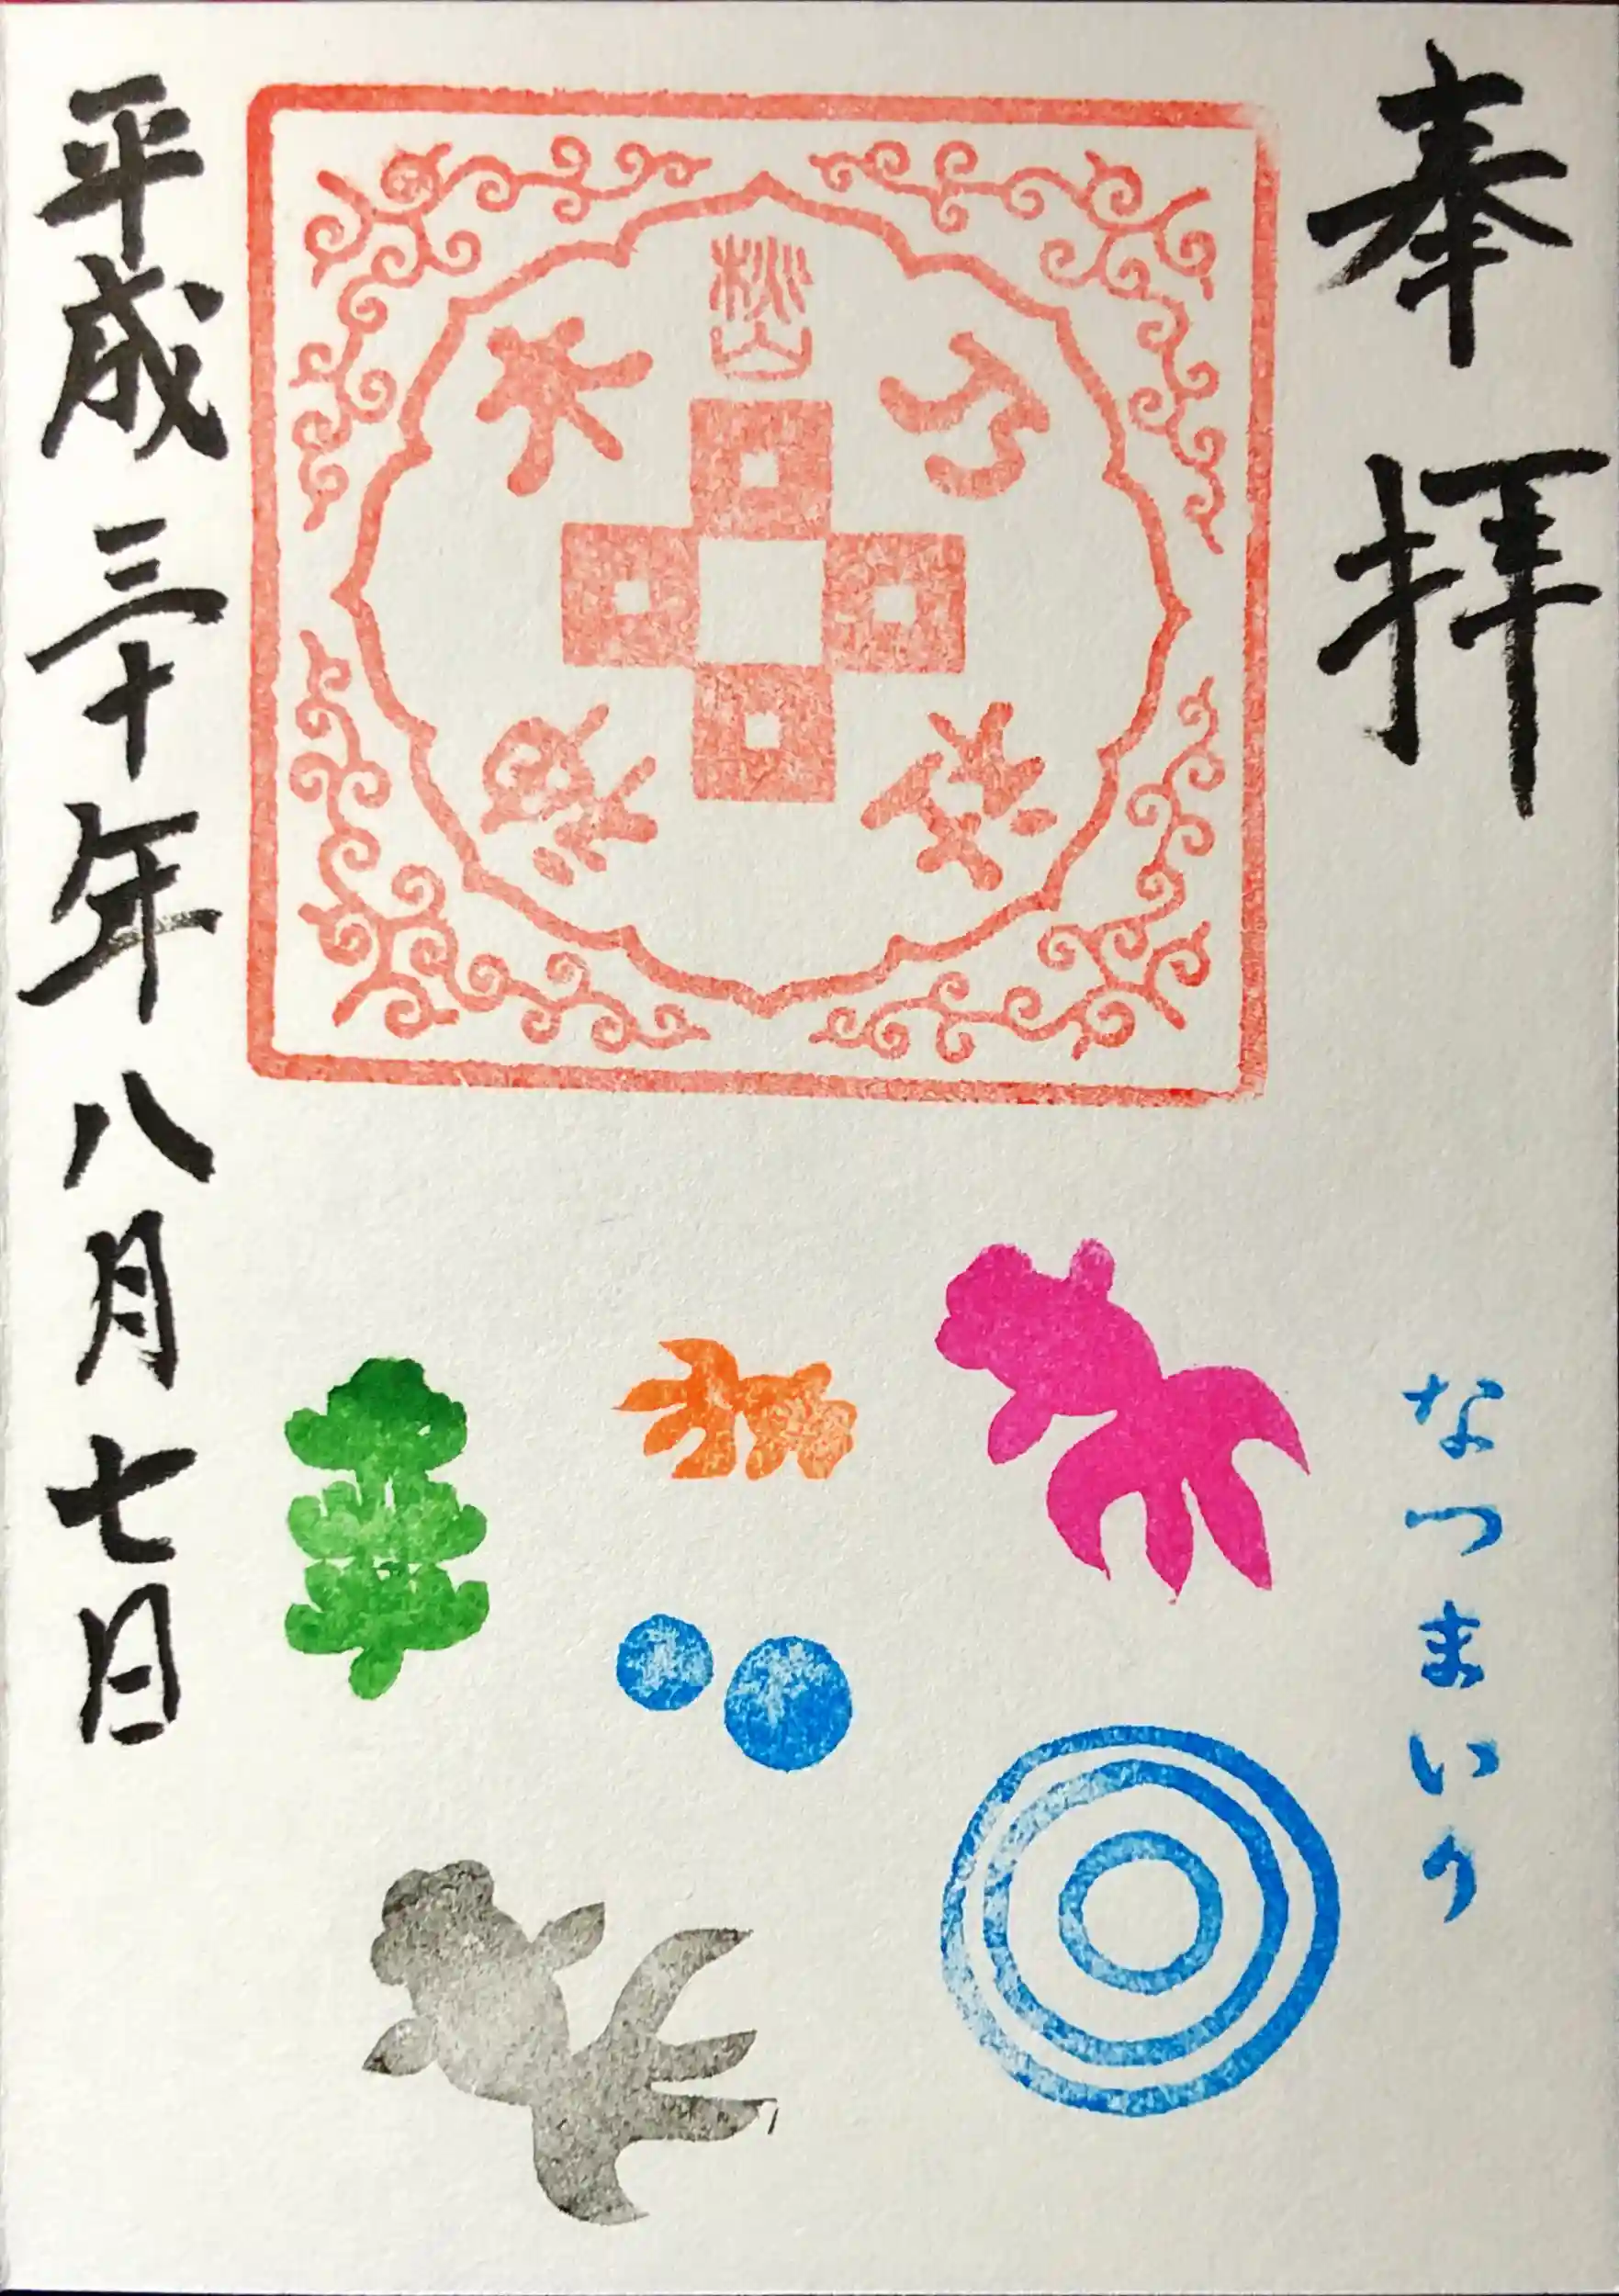 奉拝
桃山
乃木
なつまいり
平成三十年八月七日